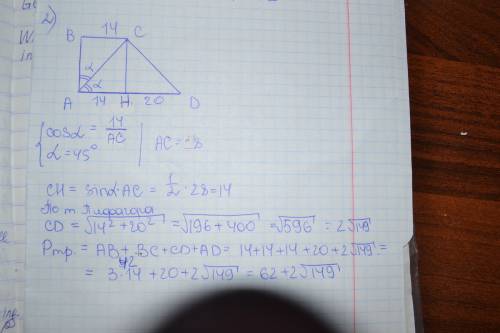 2)
14
B C
α
α
A 14 H 20 D
{ cosα = 14/AC
α = 45° | AC = 28
CH = sinα·AC = 1/2 · 28 = 14
По т Пифагора
CD = √14² + 20² = √196 + 400 = √596 = 2√149
Pтр. = AB + BC + CD + AD = 14 + 14 + 14 + 20 + 2√149 =
42
= 3·14 + 20 + 2√149 = 62 + 2√149